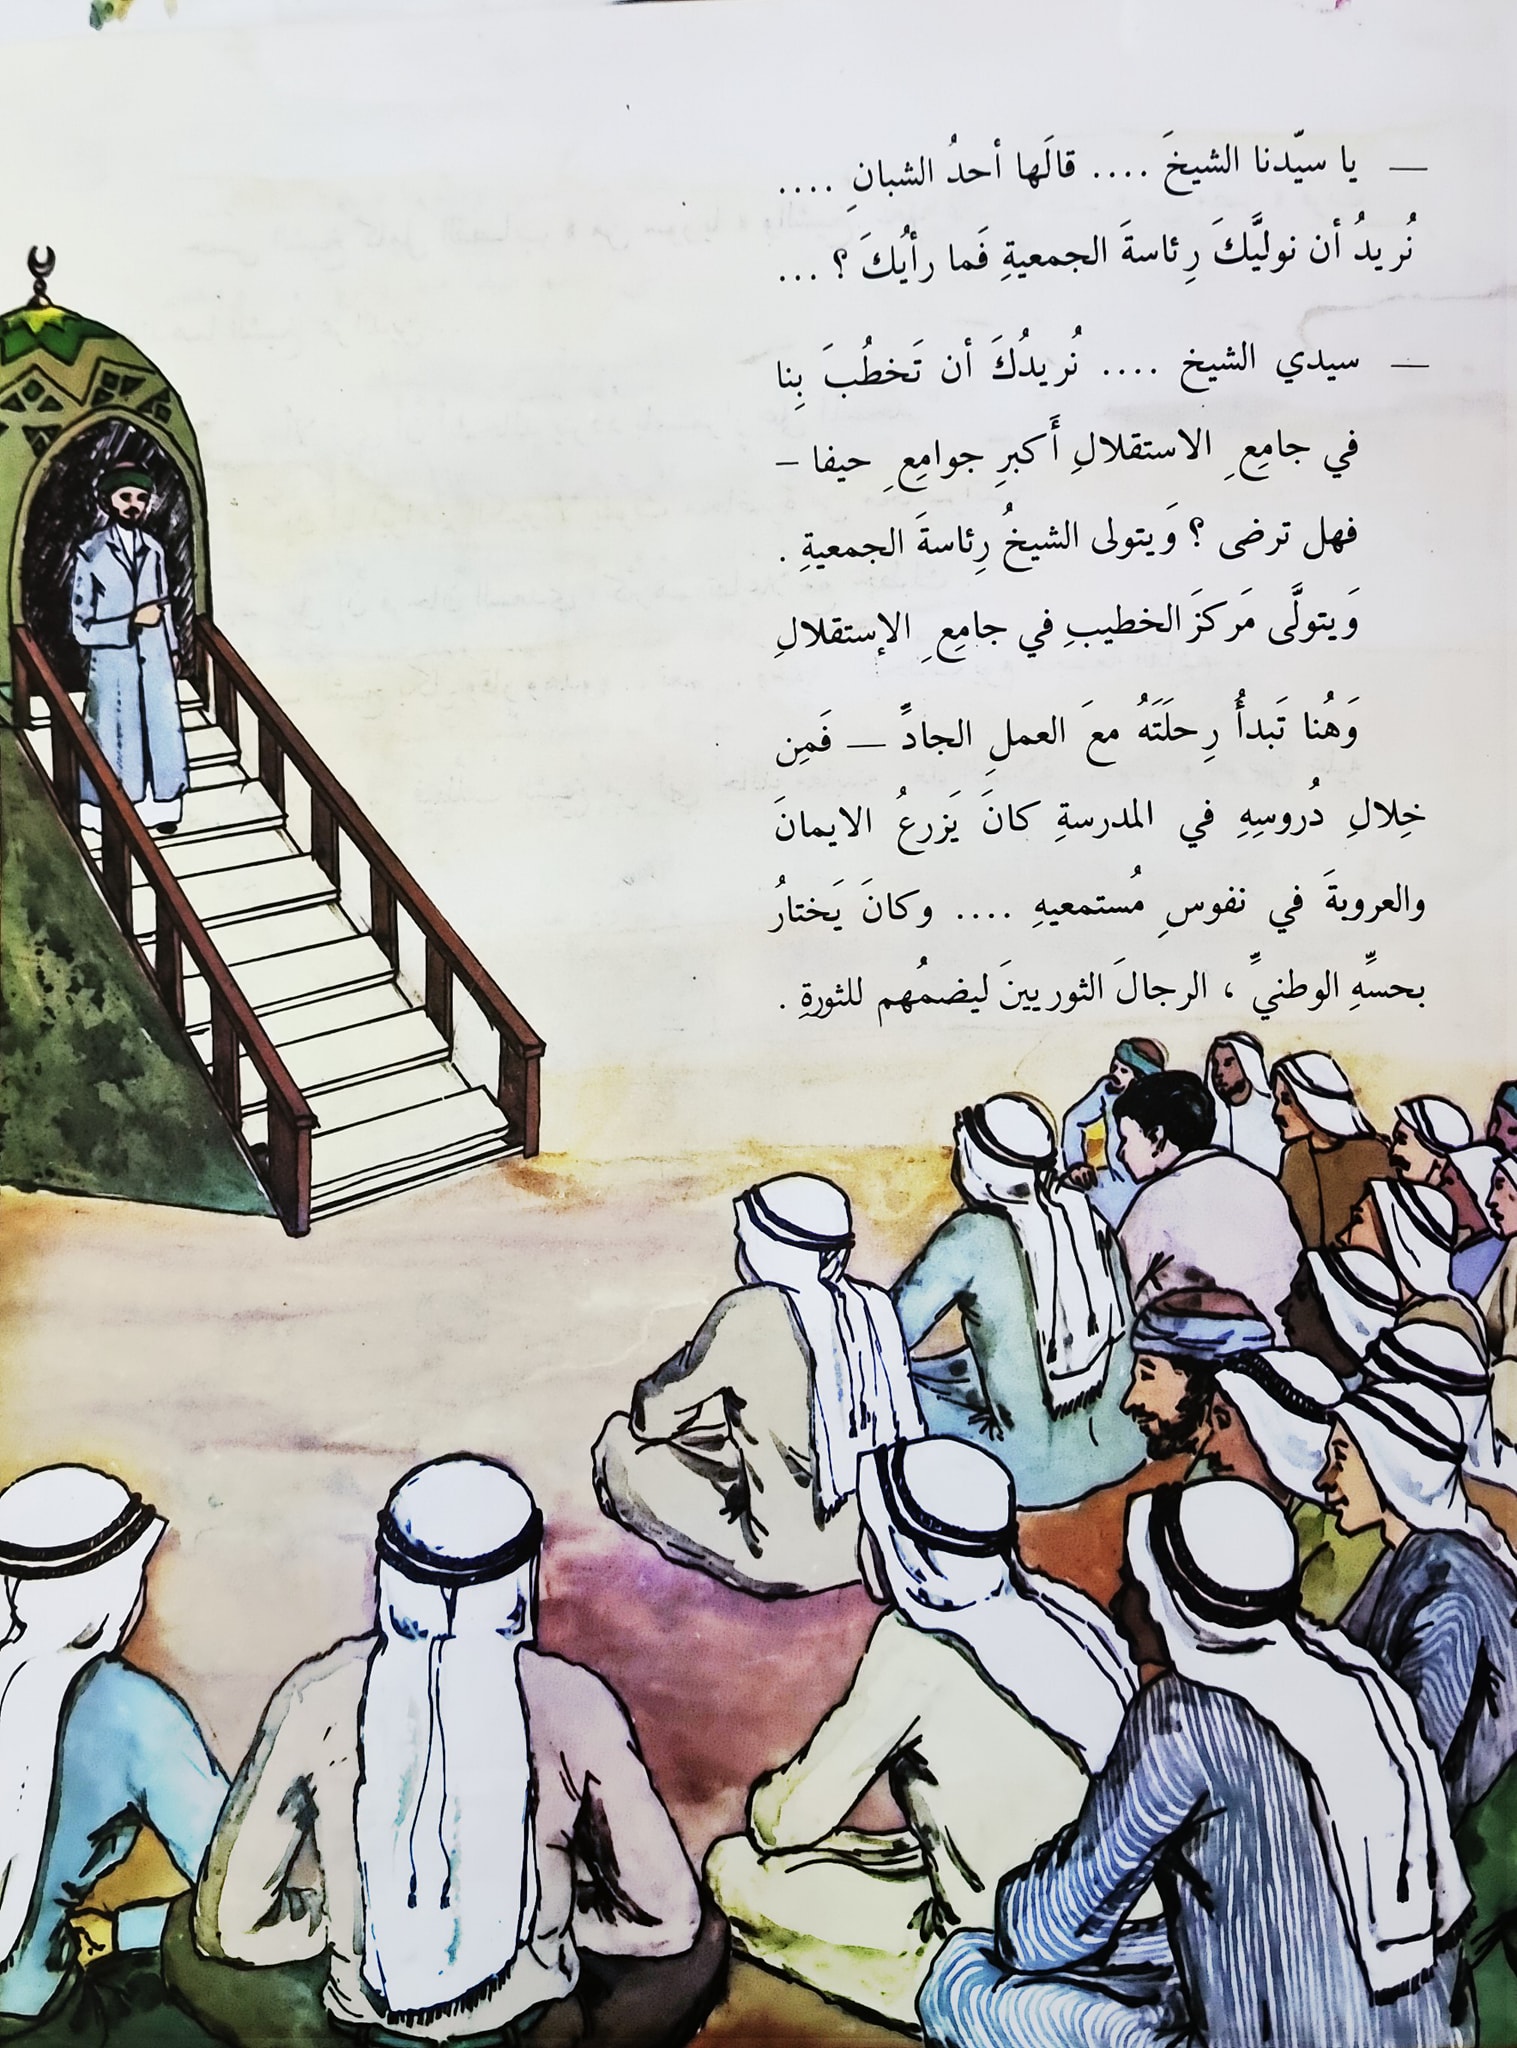 — يا سيّدنا الشيخَ .... قالَها أحدُ الشبانِ ....
نُريدُ أن نوليَّكَ رِئاسةَ الجمعيةِ فَما رأيُكَ ؟ ...
— سيدي الشيخ .... نُريدُكَ أن تَخطُبَ بِنا
في جامِعِ الاستقلالِ أَكبرِ جوامِعِ حيفا –
فهل ترضى ؟ وَيتولى الشيخُ رِئاسةَ الجمعيةِ .
وَيتولَّى مَركزَ الخطيبِ في جامِعِ الإستقلالِ
وَهُنا تَبدأُ رِحلَتَهُ معَ العملِ الجادِّ — فَمِن
خِلالِ دُروسِهِ في المدرسةِ كانَ يَزرعُ الايمانَ
والعروبةَ في نفوسِ مُستمعيهِ .... وكانَ يَختارُ
بحسِّهِ الوطنيِّ ، الرجالَ الثوريينَ ليضمُهم للثورةِ .